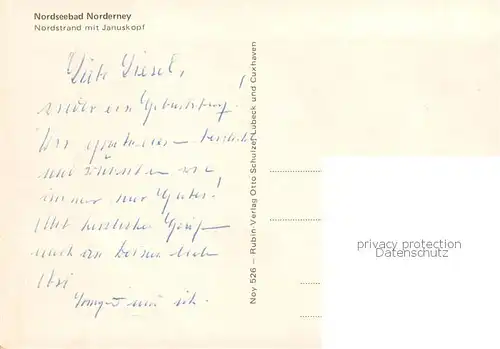 Nordseebad Norderney
Nordstrand mit Januskopf
Liebe Liesel,
wieder ein Geburtstag!
Wir gratulieren herzlichst
und wünschen wie
immer nur Gutes!
Mit herzlichen Grüßen
auch an Deinen lieben
und ich.
Noy 526 — Rubin-Verlag Otto Schulze, Lübeck und Cuxhaven
privacy protection
Datenschutz